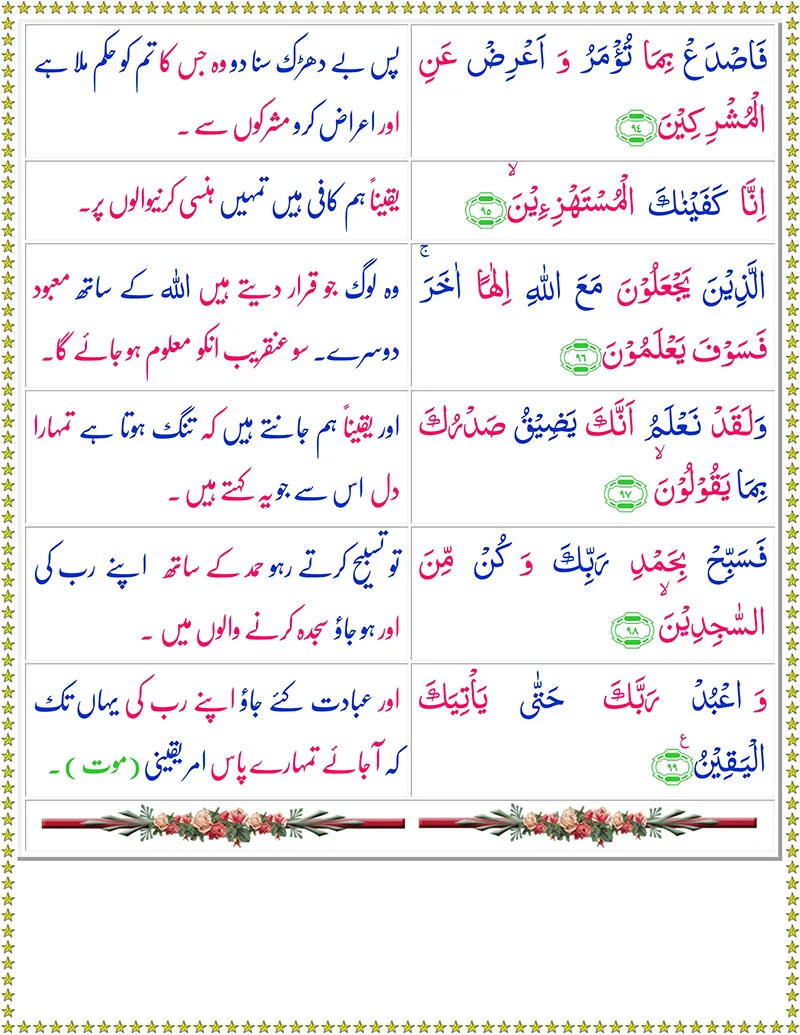 فَاصْدَعْ بِمَا تُؤْمَرُ وَ اَعْرِضْ عَنِ
الْمُشْرِكِيْنَ ﴿۹۴﴾
پس بے دھڑک سنا دو وہ جس کا تم کو حکم ملا ہے
اور اعراض کرو مشرکوں سے ۔
اِنَّا كَفَيْنٰكَ الْمُسْتَهْزِءِيْنَ ۙ﴿۹۵﴾
یقیناً ہم کافی ہیں تمہیں ہنسی کرنیوالوں پر۔
الَّذِيْنَ يَجْعَلُوْنَ مَعَ اللّٰهِ اِلٰهًا اٰخَرَ ۚ
فَسَوْفَ يَعْلَمُوْنَ ﴿۹۶﴾
وہ لوگ جو قرار دیتے ہیں اللہ کے ساتھ معبود
دوسرے۔ سو عنقریب انکو معلوم ہو جائے گا۔
وَلَقَدْ نَعْلَمُ اَنَّكَ يَضِيْقُ صَدْرُكَ
بِمَا يَقُوْلُوْنَ ۙ﴿۹۷﴾
اور یقیناً ہم جانتے ہیں کہ تنگ ہوتا ہے تمہارا
دل اس سے جو یہ کہتے ہیں ۔
فَسَبِّحْ بِحَمْدِ رَبِّكَ وَ كُنْ مِّنَ
السّٰجِدِيْنَ ۙ﴿۹۸﴾
تو تسبیح کرتے رہو حمد کے ساتھ اپنے رب کی
اور ہو جاؤ سجدہ کرنے والوں میں ۔
وَ اعْبُدْ رَبَّكَ حَتّٰى يَاْتِيَكَ
الْيَقِيْنُ ﴿۹۹﴾ ع
اور عبادت کئے جاؤ اپنے رب کی یہاں تک
کہ آ جائے تمہارے پاس امر یقینی (موت) ۔